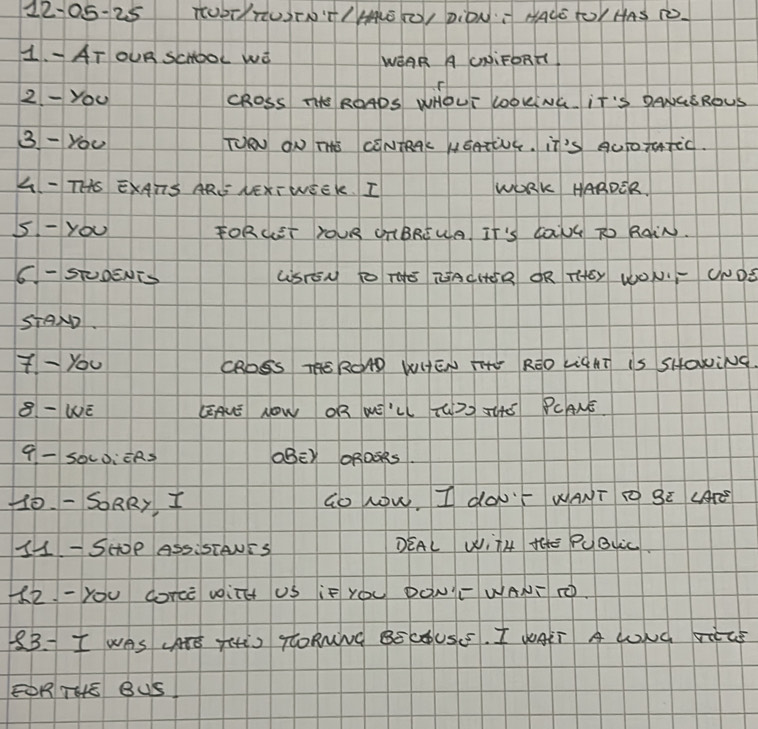 12-05-25 MUST/MUSTN'T/HAVE TO/ DIDN'T HAVE TO/ HAS TO.
1.- AT OUR SCHOOL WE WEAR A UNIFORM.
2.- YOU CROSS THE ROADS WHOUT LOOKING. IT'S DANGEROUS
3.- YOU TURN ON THE CENTRAL HEATING. IT'S AUTOMATIC.
4.- THE EXAMS ARE NEXT WEEK I WORK HARDER.
5.- YOU FORGET YOUR UMBRELLA. IT'S GOING TO RAIN.
6.- STUDENTS LISTEN TO THE TEACHER OR THEY WON'T UNDE
STAND.
7.- YOU CROSS THE ROAD WHEN THE RED LIGHT IS SHOWING.
8.- WE LEAVE NOW OR WE'LL MISS THE PLANE.
9.- SOLDIERS OBEY ORDERS.
10.- SORRY, I GO NOW. I DON'T WANT TO BE LATE
11.- SHOP ASSISTANTS DEAL WITH THE PUBLIC.
12.- YOU COME WITH US IF YOU DON'T WANT TO.
13.- I WAS LATE THIS MORNING BECAUSE. I WAIT A LONG TIME
FOR THE BUS.